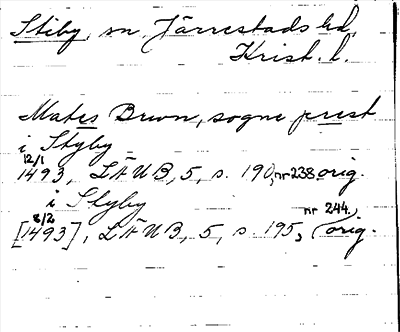 Stiby, sn, Järrestads hd,
Krist. l.
Mates Brwn, sogne prest
i Styby
12/1
1493, LÄUB, 5, s. 190, nr 238 orig.
i Styby
8/2 nr 244.
[1493], LÄUB, 5, s. 195, orig.